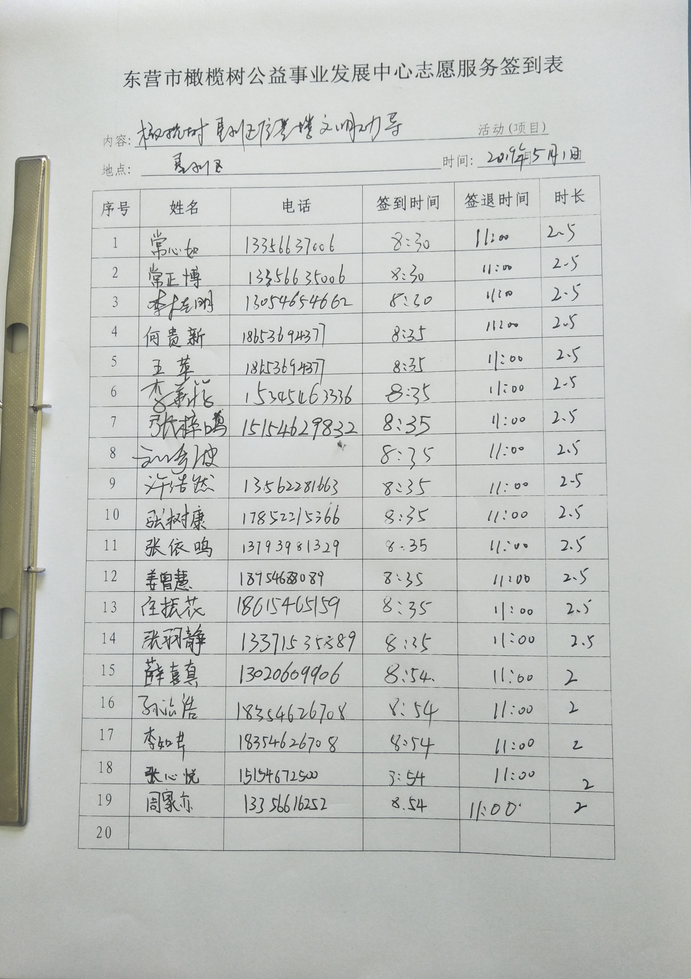 东营市橄榄树公益事业发展中心志愿服务签到表
内容: 橄榄树 垦利区 文明劝导 活动(项目)
地点: 垦利区 时间: 2019年5月1日
序号 姓名 电话 签到时间 签退时间 时长
1 常心如 13356637006 8:30 11:00 2.5
2 常正博 13356635006 8:30 11:00 2.5
3 13054654662 8:30 11:00 2.5
4 何贵新 18653694377 8:35 11:00 2.5
5 王苹 18653694377 8:35 11:00 2.5
6 15345463336 8:35 11:00 2.5
7 张梓鸣 15154629832 8:35 11:00 2.5
8 8:35 11:00 2.5
9 许浩然 13562281663 8:35 11:00 2.5
10 张树康 17852215366 8:35 11:00 2.5
11 张依鸣 13793981329 8:35 11:00 2.5
12 姜曾慧 18754688089 8:35 11:00 2.5
13 任振花 18615465159 8:35 11:00 2.5
14 张羽静 13371535389 8:35 11:00 2.5
15 薛喜真 13020609906 8:54 11:00 2
16 18354626708 8:54 11:00 2
17 李如芹 18354626708 8:54 11:00 2
18 张心悦 15154672500 11:00 2
19 周家亦 13356616252 8.54 11:00 2
20